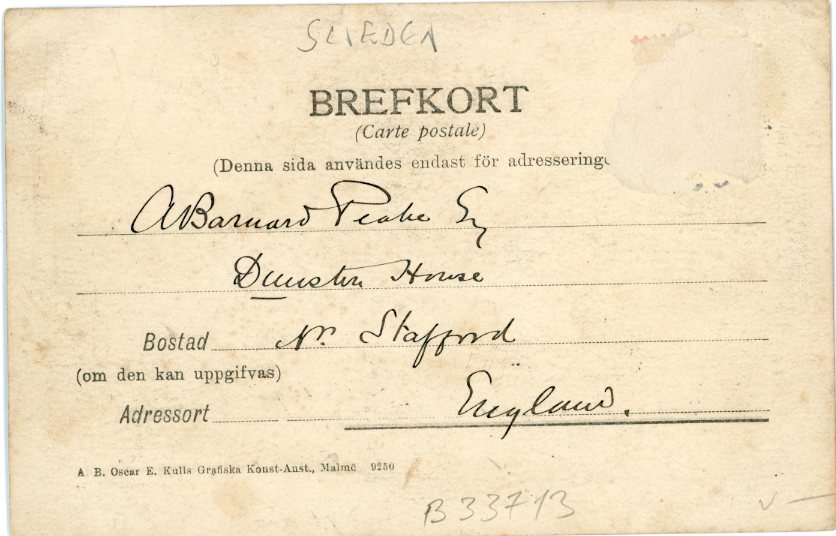 SWEDEN
BREFKORT
(Carte postale)
(Denna sida användes endast för adressering
A Barnard Peake Esq
Dunston House
Bostad Nr. Stafford
(om den kan uppgifvas)
Adressort England.
A. B. Oscar E. Kulls Grafiska Konst-Anst., Malmö 9250
B33713